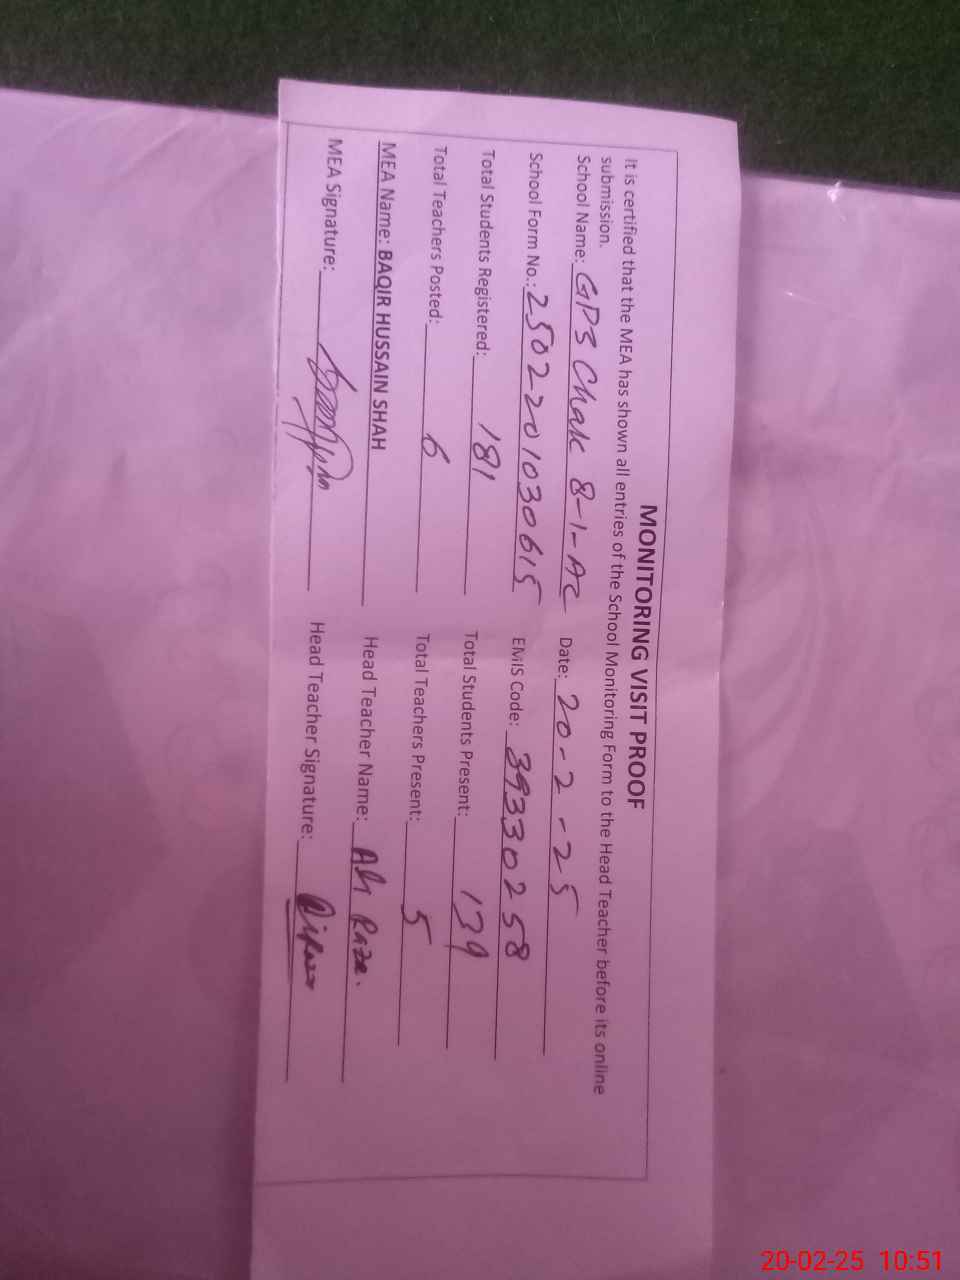 MONITORING VISIT PROOF
It is certified that the MEA has shown all entries of the School Monitoring Form to the Head Teacher before its online
submission.
School Name: GPS Chak 8-1-AL Date: 20-2-25
School Form No.: 2502201030615 EMIS Code: 39330258
Total Students Registered: 181 Total Students Present: 139
Total Teachers Posted: 6 Total Teachers Present: 5
MEA Name: BAQIR HUSSAIN SHAH Head Teacher Name: Ali Raza.
MEA Signature: Head Teacher Signature:
20-02-25 10:51